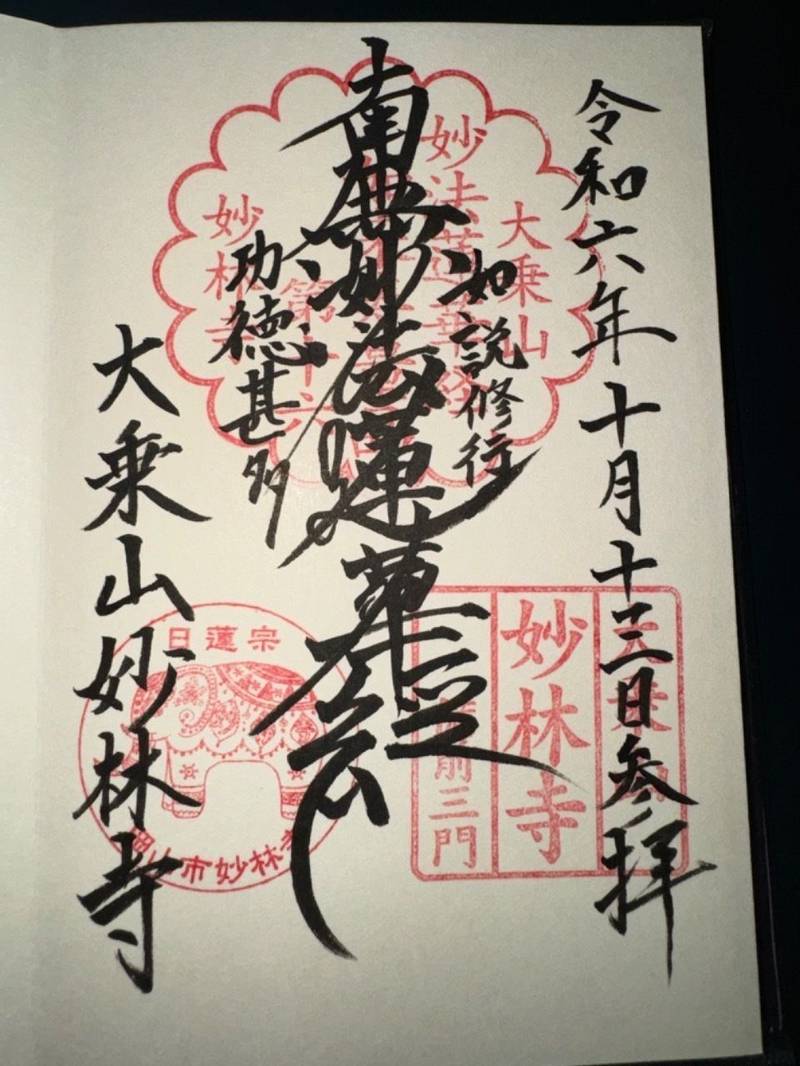 令和六年十月十三日参拝
如説修行
南無妙法蓮華経
功徳甚多
大乗山妙林寺
大乗山
妙法蓮華経
第十六
妙林寺
妙林寺
前三門
日蓮宗
岡山市妙林寺